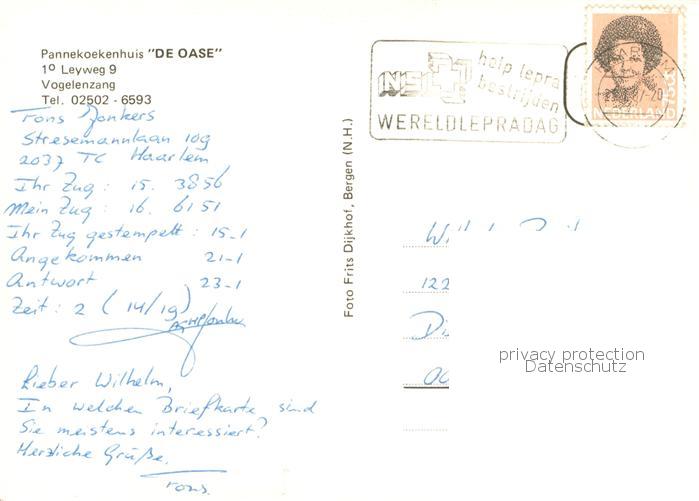 Pannekoekenhuis "DE OASE"
1º Leyweg 9
Vogelenzang
Tel. 02502 - 6593
Tons Jonkers
Stresemannlaan 109
2037 TC Haarlem
Ihr Zug : 15. 3856
Mein Zug : 16. 6151
Ihr Zug gestempelt : 15-1
Angekommen 21-1
Antwort 23-1
Zeit : 2 (14/19)
Lieber Wilhelm,
In welchen Briefkarte sind
Sie meistens interessiert?
Herzliche Grüße,
Tons.
Foto Frits Dijkhof, Bergen (N.H.)
NSL
help lepra
bestrijden
WERELDLEPRADAG
NEDERLAND
122
privacy protection
Datenschutz